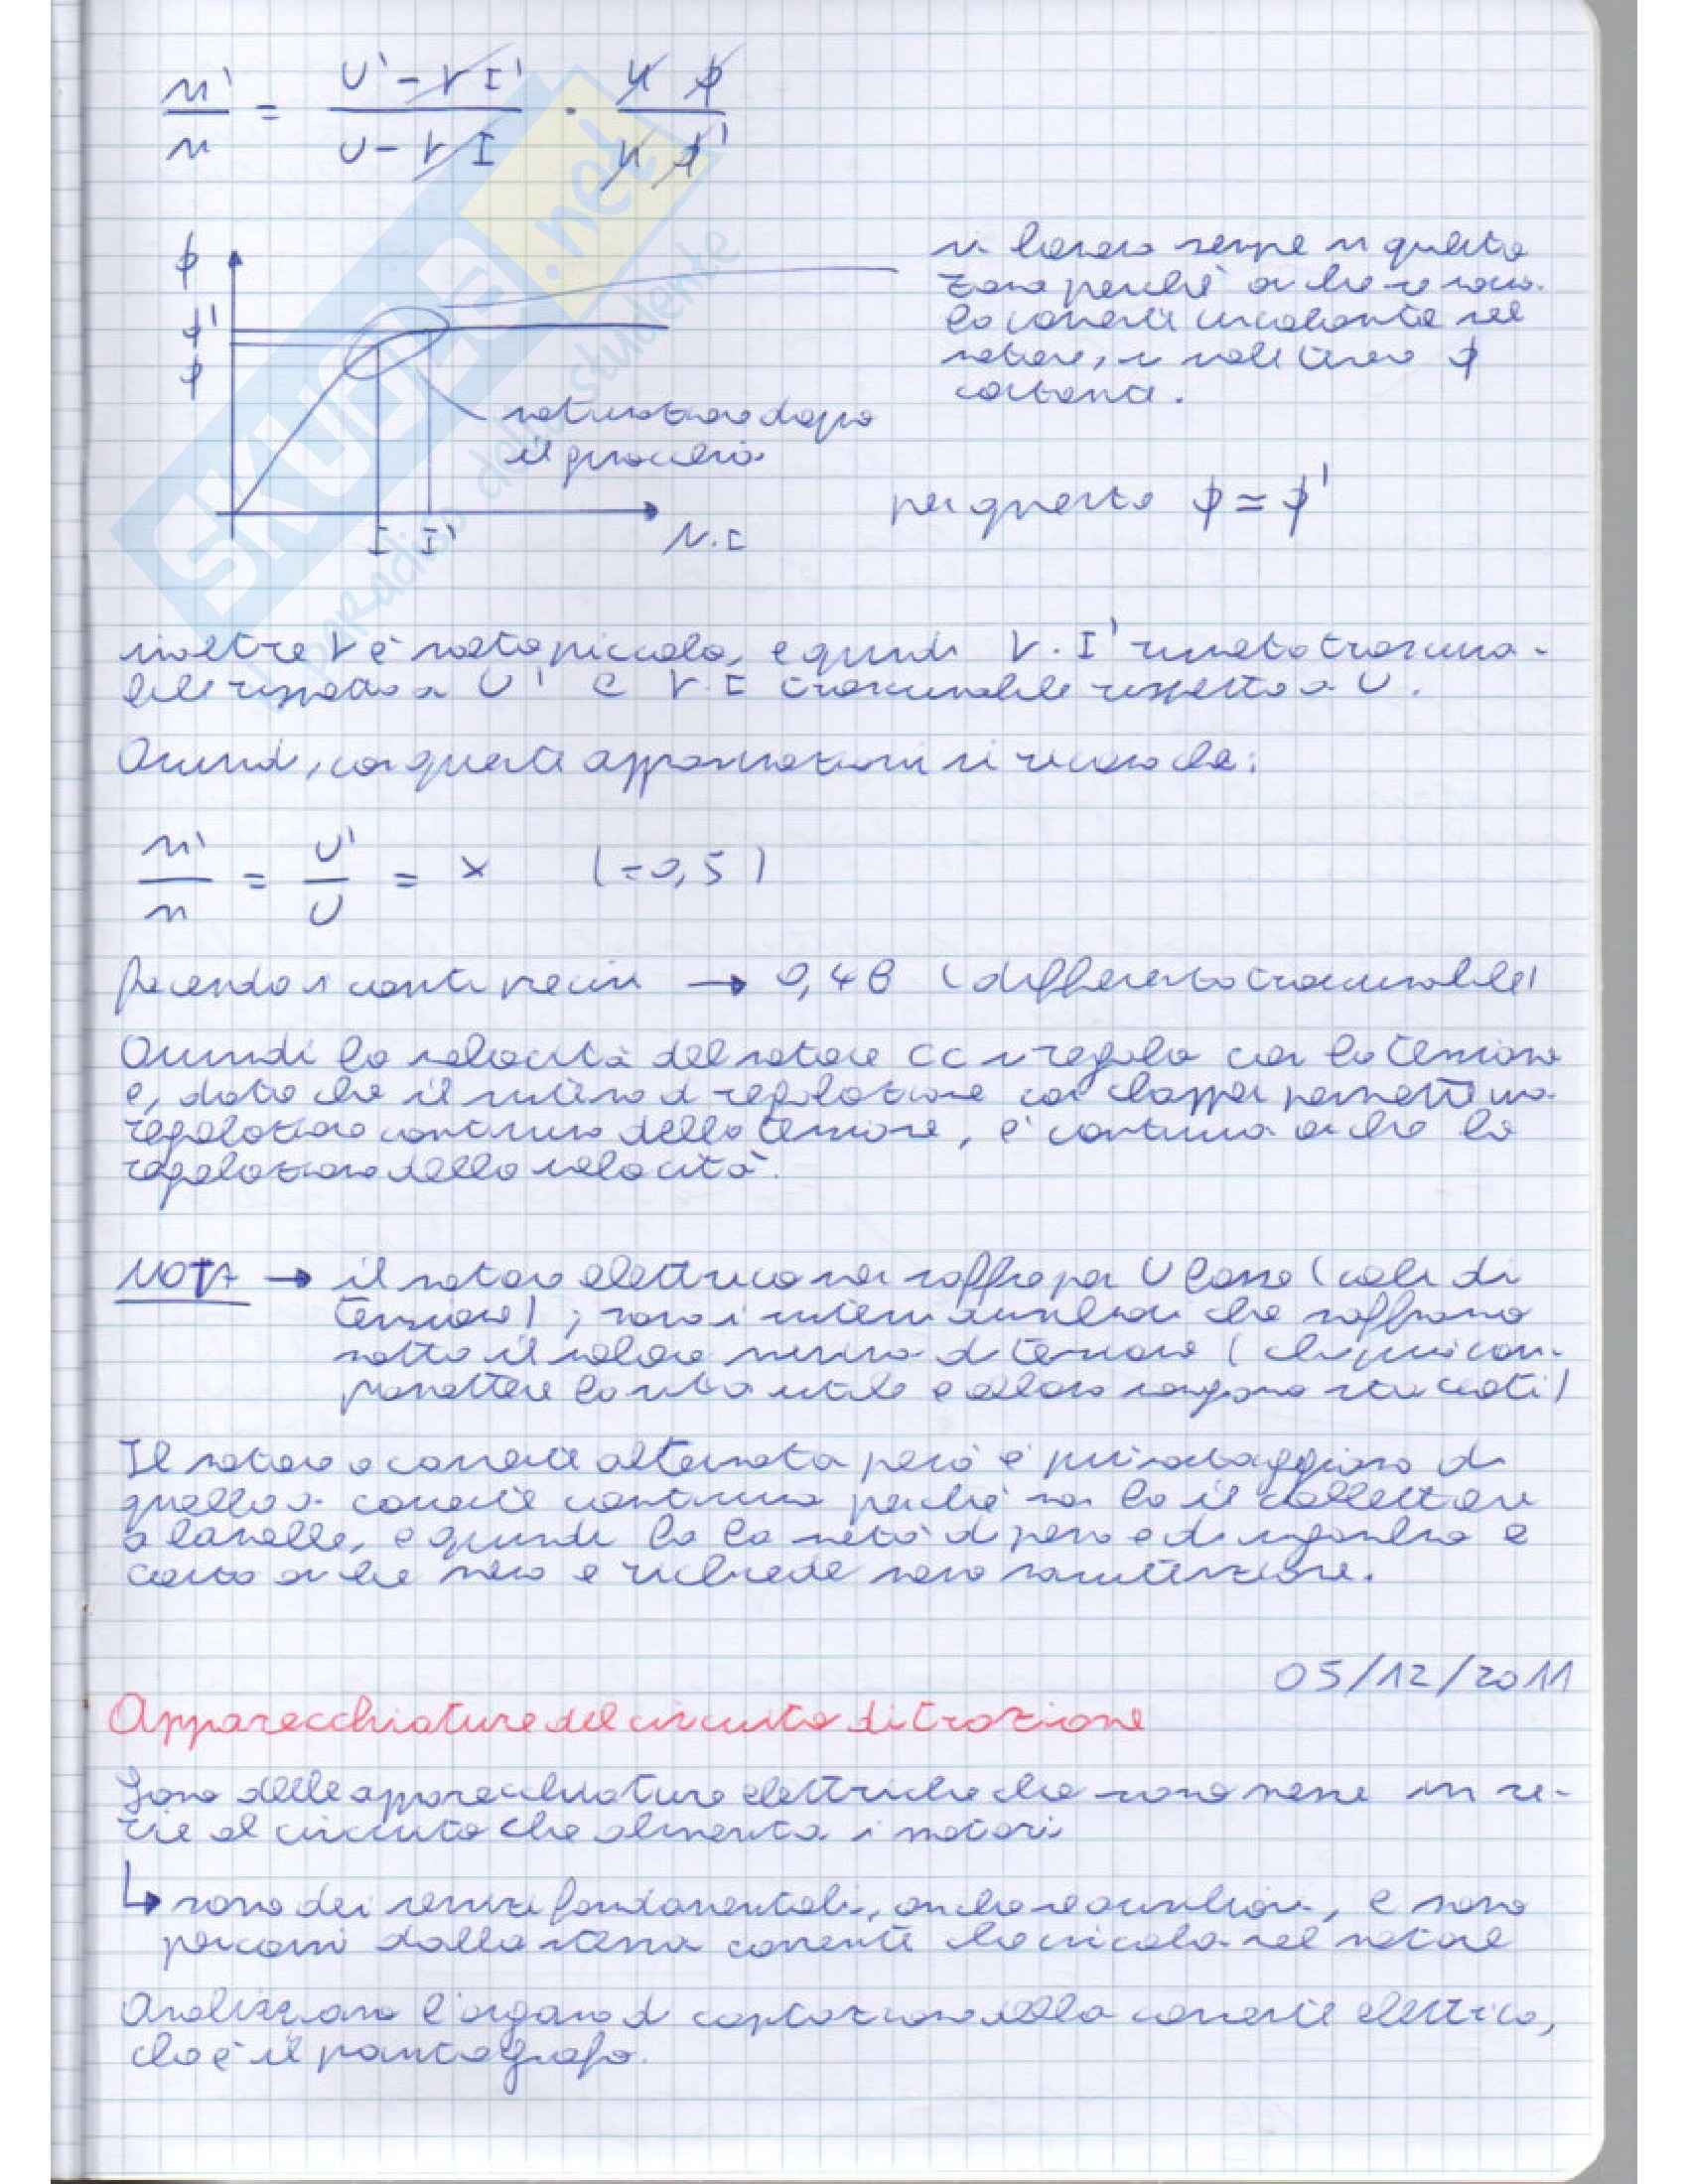 n' / n = (U' - rI') / (U - rI) · (k φ) / (k φ')
φ
φ'
φ
I I' N.I
si lavora sempre in questa
zona perchè anche se varia
la corrente circolante nel
motore, si vuole tenere φ
costante.
saturazione dopo
il ginocchio
per questo φ ≃ φ'
inoltre r è molto piccola, e quindi r·I' risulta trascura-
bile rispetto a U' e r·I trascurabile rispetto a U.
Quindi, con queste approssimazioni si ricava che:
n' / n = U' / U = x (=0,5)
facendo i conti precisi → 0,48 (differenza trascurabile)
Quindi la velocità del motore CC si regola con la tensione
e, dato che il sistema di regolazione con chopper permette una
regolazione continua della tensione, è continua anche la
regolazione della velocità.
NOTA → il motore elettrico non soffre per U bassa (cali di
tensione); sono i sistemi ausiliari che soffrono
sotto il valore minimo di tensione (che può com-
promettere la vita utile e allora vengono staccati)
Il motore a corrente alternata però è più vantaggioso di
quello a corrente continua perchè non ha il collettore
a lamelle, e quindi ha la metà di peso e di ingombro e
costa anche meno e richiede meno manutenzione.
05/12/2011
Apparecchiature del circuito di trazione
Sono delle apparecchiature elettriche che sono messe in se-
rie al circuito che alimenta i motori
↳ sono dei servizi fondamentali, anche se ausiliari, e sono
percorsi dalla stessa corrente che circola nel motore
Analizziamo l'organo di captazione della corrente elettrica,
che è il pantografo.
SKUOLA.net
il paradiso dello studente